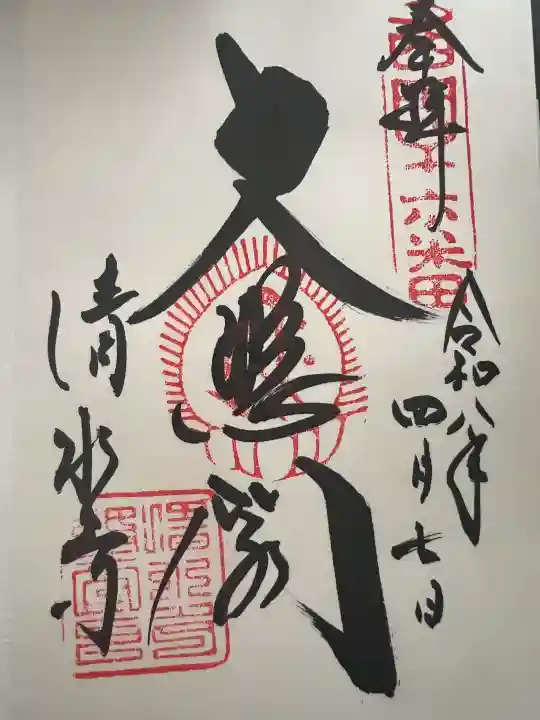 奉拝
西国十六番
令和八年
四月七日
大悲閣
清水寺